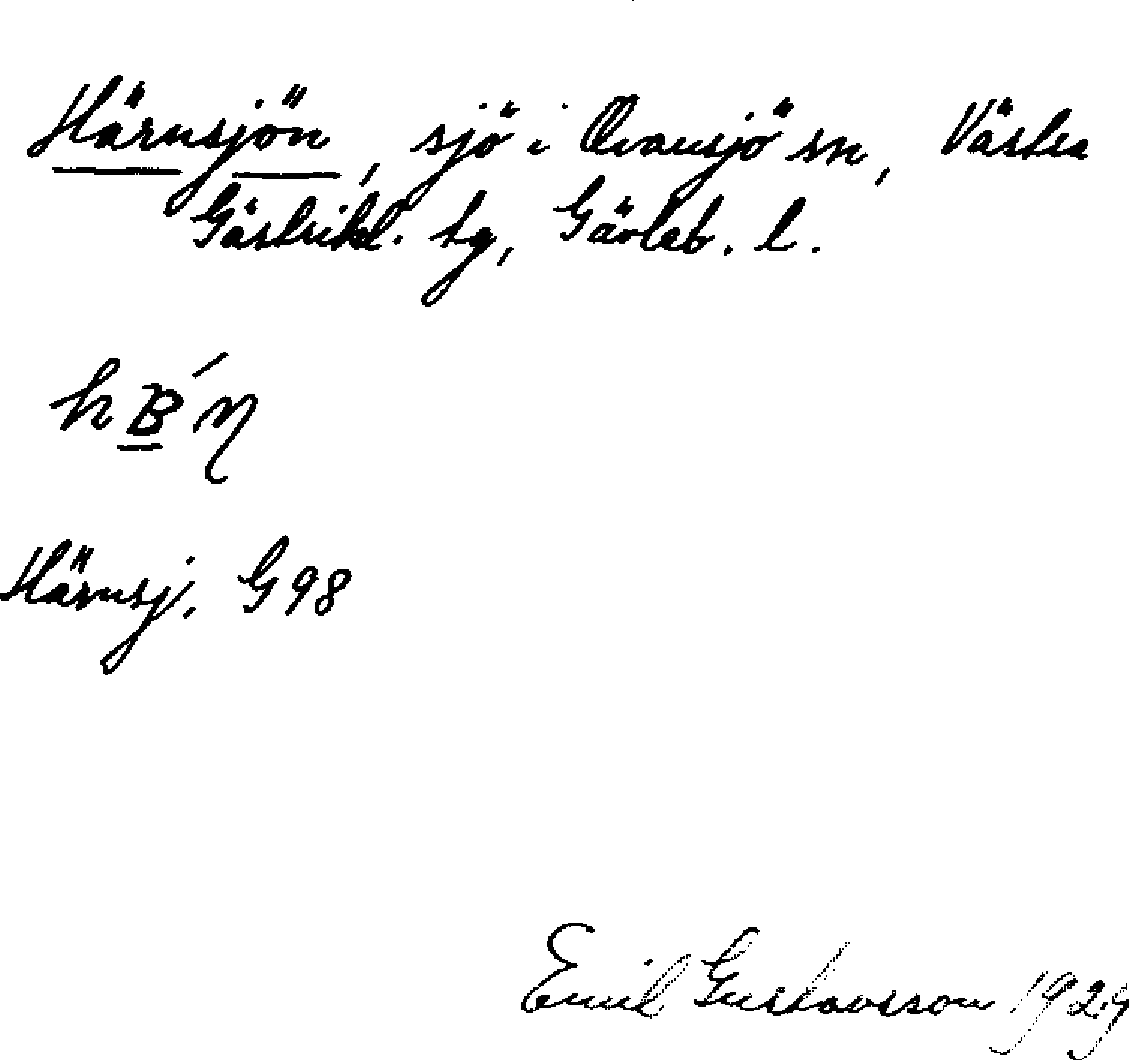 Härnsjön, sjö i Ovansjö sn, Västra
Gästrikl. tg, Gävleb. l.
Härnsj. G 98
Emil Gustavsson 1929